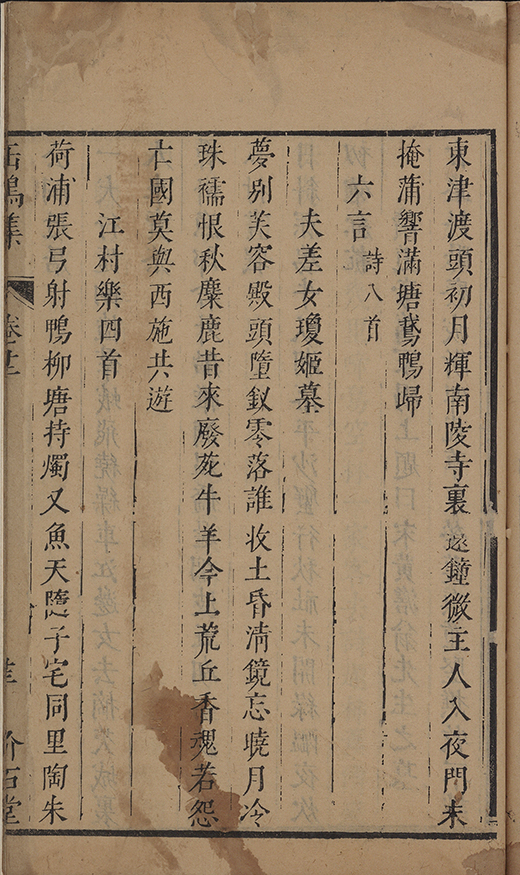 東津渡頭初月輝南陵寺裏遠鐘微主人入夜門未
掩蒲響滿塘鵞鴨歸
六言 詩八首
夫差女瓊姬墓
夢別芙容殿頭墮釵零落誰收土昏清鏡忘曉月冷
珠襦恨秋麋鹿昔來廢苑牛羊今上荒丘香魂若怨
亡國莫與西施共遊
江村樂四首
荷浦張弓射鴨柳塘持燭叉魚天隨子宅同里陶朱
缶鳴集 卷十二 介石堂